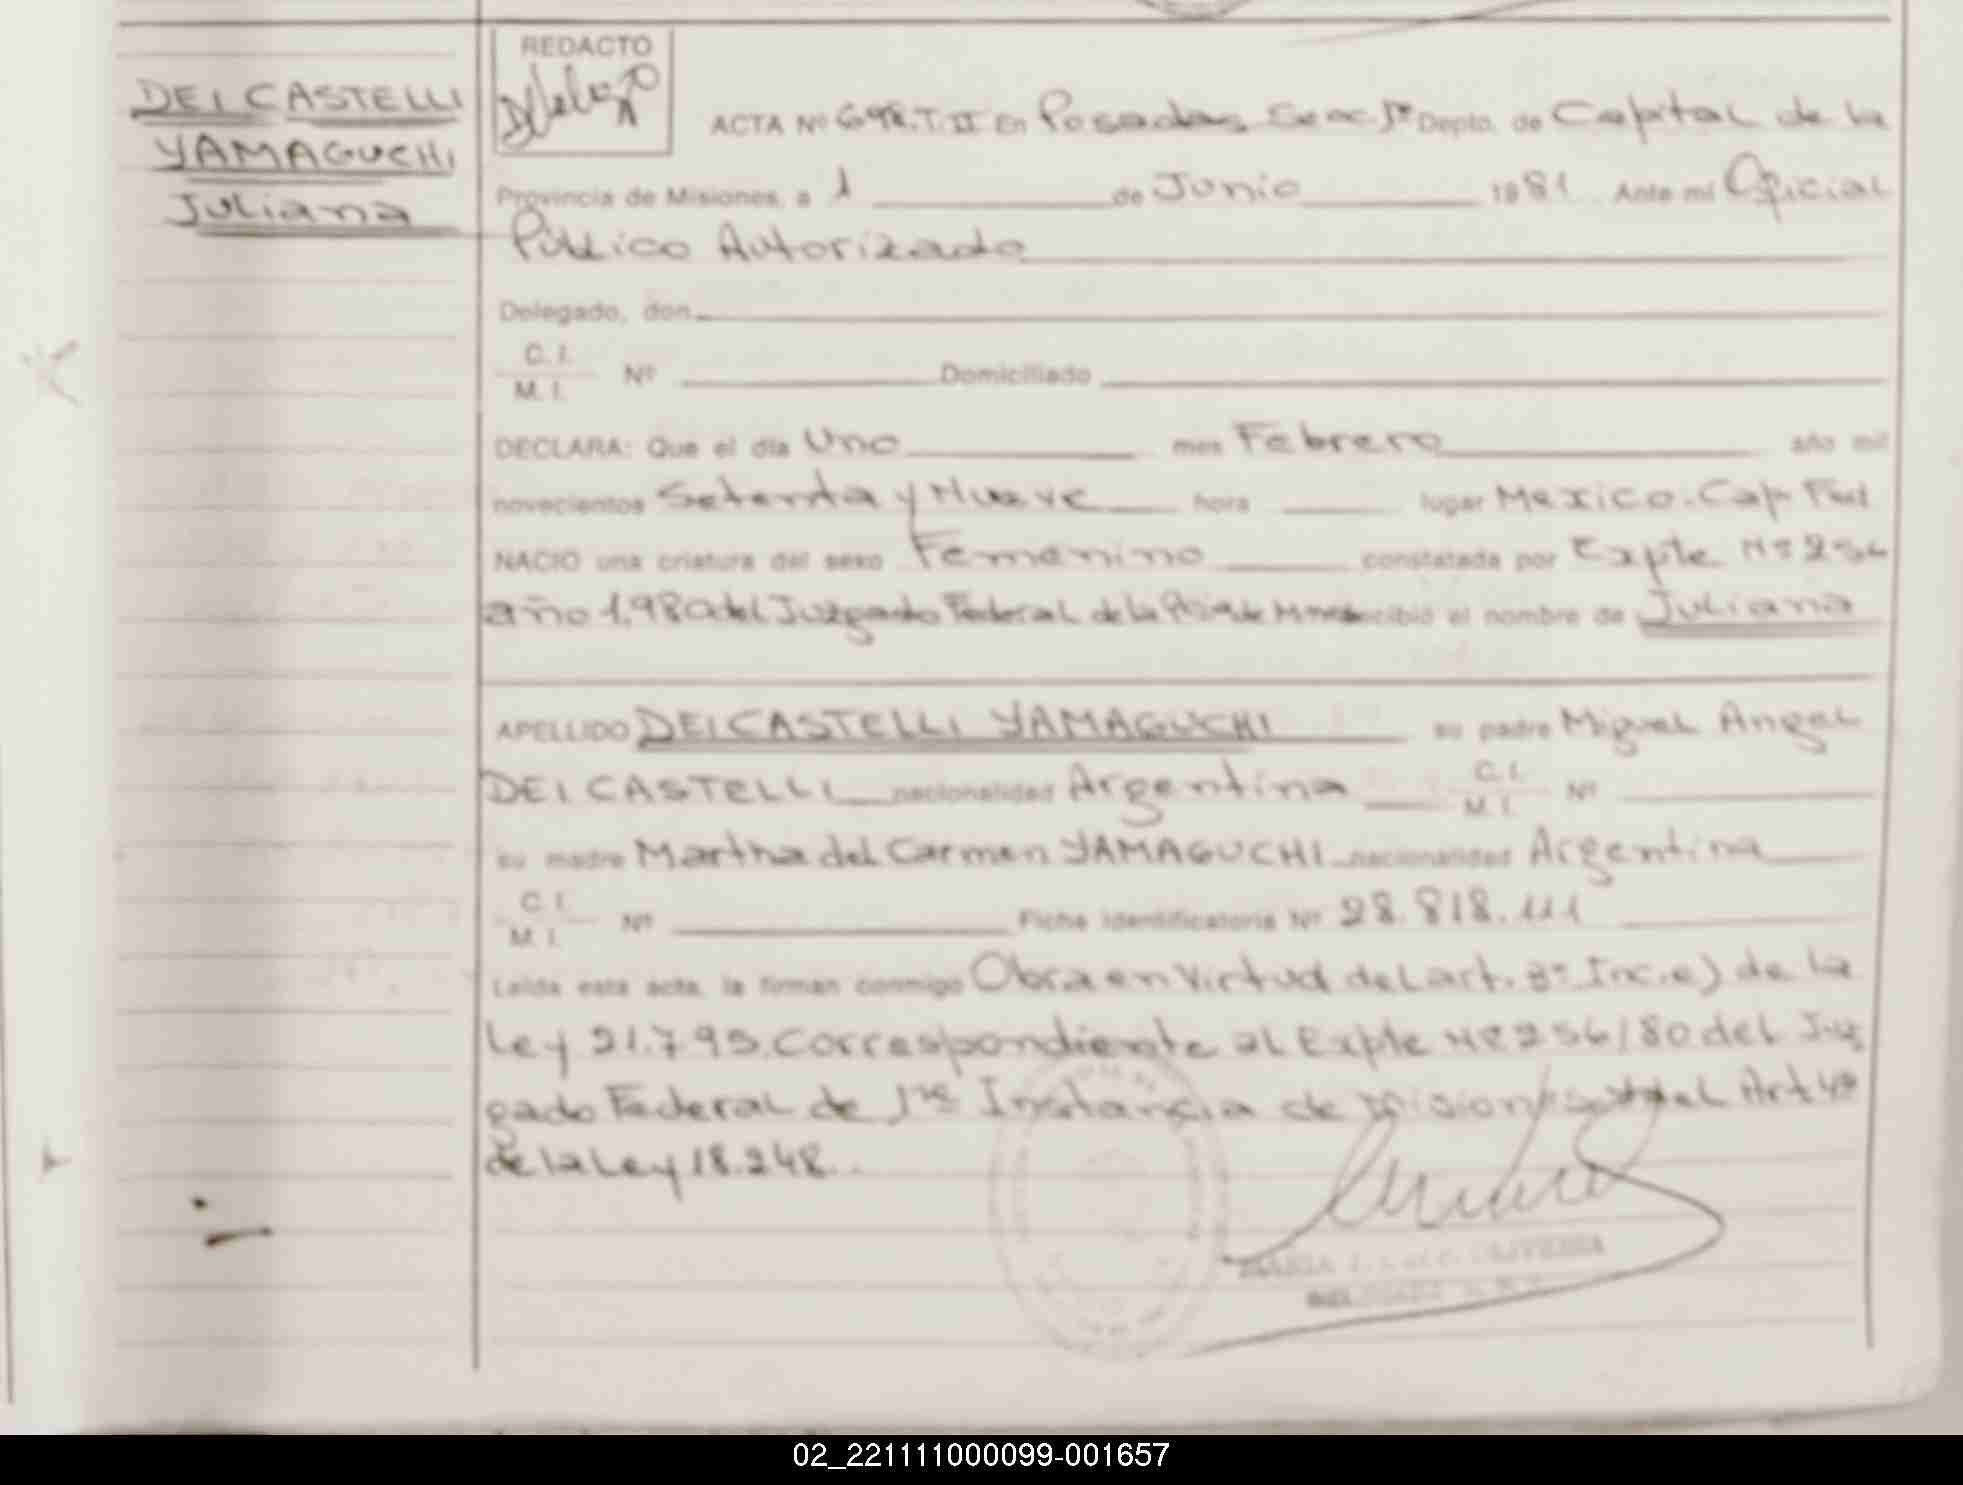 DEI CASTELLI
YAMAGUCHI
Juliana
REDACTO
ACTA Nº 698.T.II En Posadas Secc 1ra Depto. de Capital de la
Provincia de Misiones, a 1 de Junio 1981 Ante mí Oficial
Público Autorizado
Delegado, don
C. I.
M. I. Nº Domiciliado
DECLARA: Que el día Uno mes Febrero año mil
novecientos Setenta y Nueve hora lugar Mexico. Cap Fed
NACIO una criatura del sexo Femenino constatada por Expte Nº 256
año 1.980 del Juzgado Federal de la recibió el nombre de Juliana
APELLIDO DEI CASTELLI YAMAGUCHI su padre Miguel Angel
DEI CASTELLI nacionalidad Argentina C. I. M. I. Nº
su madre Martha del Carmen YAMAGUCHI nacionalidad Argentina
C. I.
M. I. Nº Ficha Identificatoria Nº 28.818.111
Leída esta acta, la firman conmigo Obra en Virtud del art. 3º Inc. e) de la
Ley 21.795. Correspondiente al Expte Nº 256/80 del Juz
gado Federal de 1ra Instancia de Misiones y del Art 4º
de la Ley 18.248.
MARIA OLIVEIRA
02_221111000099-001657